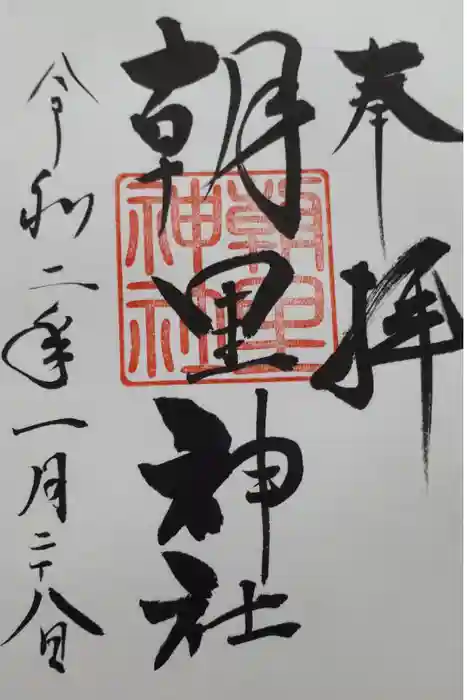 奉拝
朝里神社
朝里
神社
令和二年一月二十八日